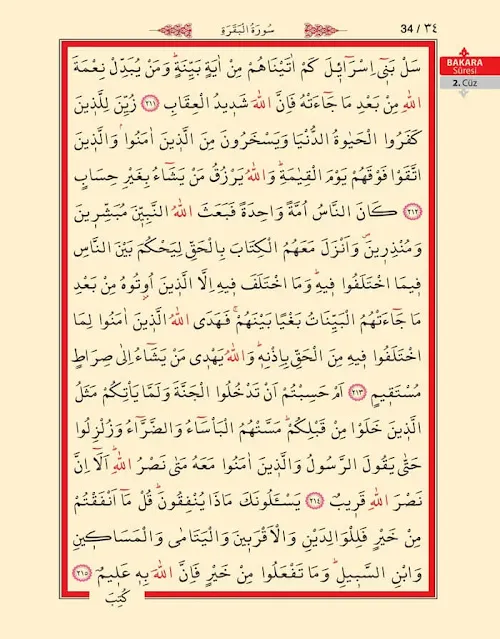 سُورَةُ الْبَقَرَةِ
34 / ٣٤
BAKARA
Sûresi
2. Cüz
سَلْ بَنٖٓي اِسْرَٓائٖلَ كَمْ اٰتَيْنَاهُمْ مِنْ اٰيَةٍ بَيِّنَةٍؕ وَمَنْ يُبَدِّلْ نِعْمَةَ
اللّٰهِ مِنْ بَعْدِ مَا جَٓاءَتْهُ فَاِنَّ اللّٰهَ شَدٖيدُ الْعِقَابِ ﴿٢١١﴾ زُيِّنَ لِلَّذٖينَ
كَفَرُوا الْحَيٰوةُ الدُّنْيَا وَيَسْخَرُونَ مِنَ الَّذٖينَ اٰمَنُواۘ وَالَّذٖينَ
اتَّقَوْا فَوْقَهُمْ يَوْمَ الْقِيٰمَةِؕ وَاللّٰهُ يَرْزُقُ مَنْ يَشَٓاءُ بِغَيْرِ حِسَابٍ
﴿٢١٢﴾ كَانَ النَّاسُ اُمَّةً وَاحِدَةً فَبَعَثَ اللّٰهُ النَّبِيّٖنَ مُبَشِّرٖينَ
وَمُنْذِرٖينَ وَاَنْزَلَ مَعَهُمُ الْكِتَابَ بِالْحَقِّ لِيَحْكُمَ بَيْنَ النَّاسِ
فٖيمَا اخْتَلَفُوا فٖيهِؕ وَمَا اخْتَلَفَ فٖيهِ اِلَّا الَّذٖينَ اُو۫تُوهُ مِنْ بَعْدِ
مَا جَٓاءَتْهُمُ الْبَيِّنَاتُ بَغْيًا بَيْنَهُمْۚ فَهَدَى اللّٰهُ الَّذٖينَ اٰمَنُوا لِمَا
اخْتَلَفُوا فٖيهِ مِنَ الْحَقِّ بِاِذْنِهٖؕ وَاللّٰهُ يَهْدٖي مَنْ يَشَٓاءُ اِلٰى صِرَاطٍ
مُسْتَقٖيمٍ ﴿٢١٣﴾ اَمْ حَسِبْتُمْ اَنْ تَدْخُلُوا الْجَنَّةَ وَلَمَّا يَأْتِكُمْ مَثَلُ
الَّذٖينَ خَلَوْا مِنْ قَبْلِكُمْؕ مَسَّتْهُمُ الْبَأْسَٓاءُ وَالضَّرَّٓاءُ وَزُلْزِلُوا
حَتّٰى يَقُولَ الرَّسُولُ وَالَّذٖينَ اٰمَنُوا مَعَهُ مَتٰى نَصْرُ اللّٰهِؕ اَلَٓا اِنَّ
نَصْرَ اللّٰهِ قَرٖيبٌ ﴿٢١٤﴾ يَسْـَٔلُونَكَ مَاذَا يُنْفِقُونَؕ قُلْ مَٓا اَنْفَقْتُمْ
مِنْ خَيْرٍ فَلِلْوَالِدَيْنِ وَالْاَقْرَبٖينَ وَالْيَتَامٰى وَالْمَسَاكٖينِ
وَابْنِ السَّبٖيلِؕ وَمَا تَفْعَلُوا مِنْ خَيْرٍ فَاِنَّ اللّٰهَ بِهٖ عَلٖيمٌ ﴿٢١٥﴾
كُتِبَ